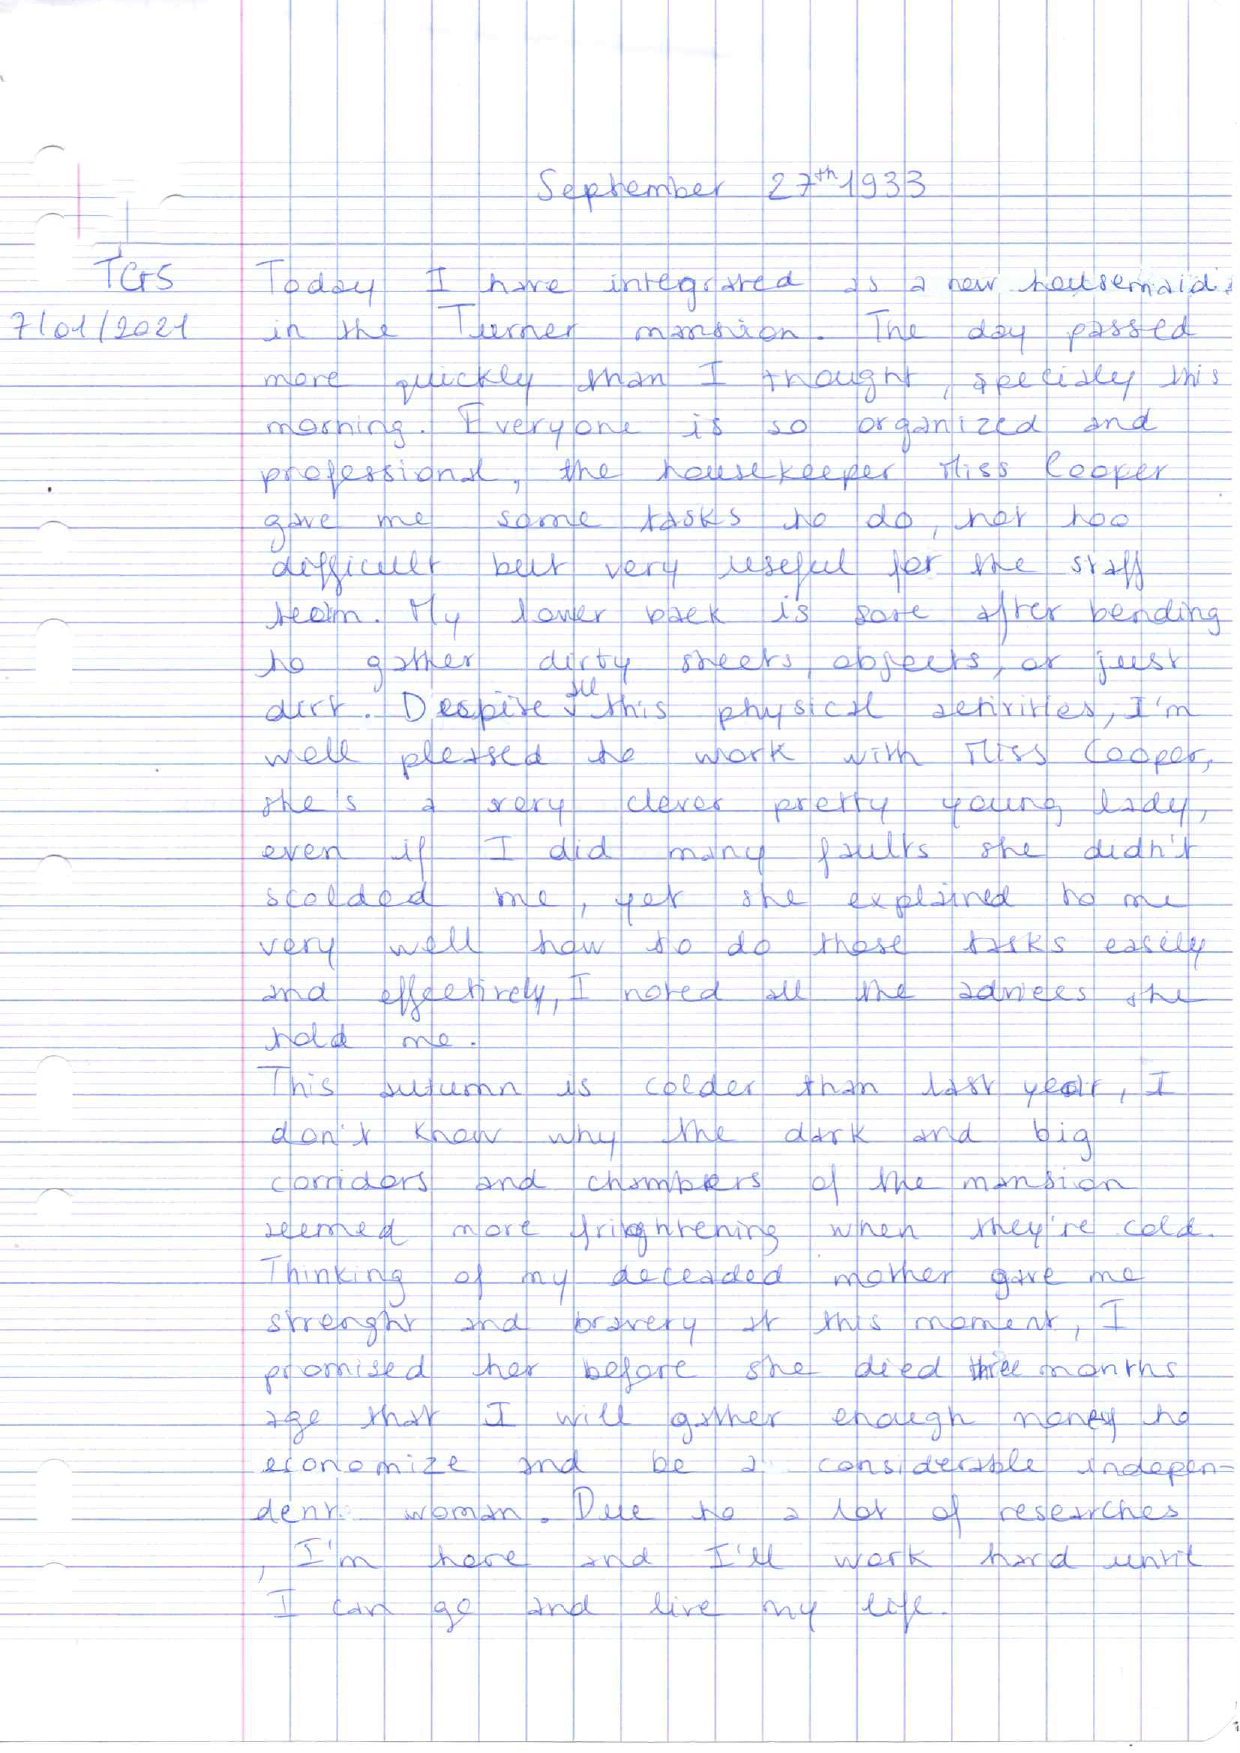 September 27th 1933
TG5
7/01/2021
Today I have integrated as a new housemaid
in the Turner mansion. The day passed
more quickly than I thought, specialy this
morning. Everyone is so organized and
professional, the housekeeper Miss Cooper
gave me some tasks to do, not too
difficult but very useful for the staff
team. My lower back is sore after bending
to gather dirty sheets, objects, or just
dirt. Despite all this physical activities, I'm
well pleased to work with Miss Cooper,
she's a very clever pretty young lady,
even if I did many faults she didn't
scolded me, yet she explained to me
very well how to do those tasks easily
and effectively, I noted all the advices she
told me.
This autumn is colder than last year, I
don't know why the dark and big
corridors and chambers of the mansion
seemed more frightening when they're cold.
Thinking of my deceaded mother gave me
strenght and bravery at this moment, I
promised her before she died three months
ago that I will gather enough money to
economize and be a considerable indepen-
dent woman. Due to a lot of researches
, I'm here and I'll work hard until
I can go and live my life.